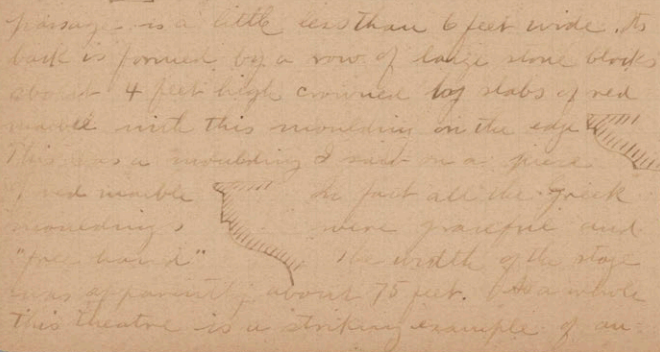 passage is a little less than 6 feet wide. Its
back is formed by a row of large stone blocks
about 4 feet high crowned by slabs of red
marble with this moulding on the edge
This is a moulding I saw on a piece
of red marble In fact all the Greek
mouldings were graceful and
"free hand" The width of the stage
was apparently about 75 feet. As a whole
this theatre is a striking example of an